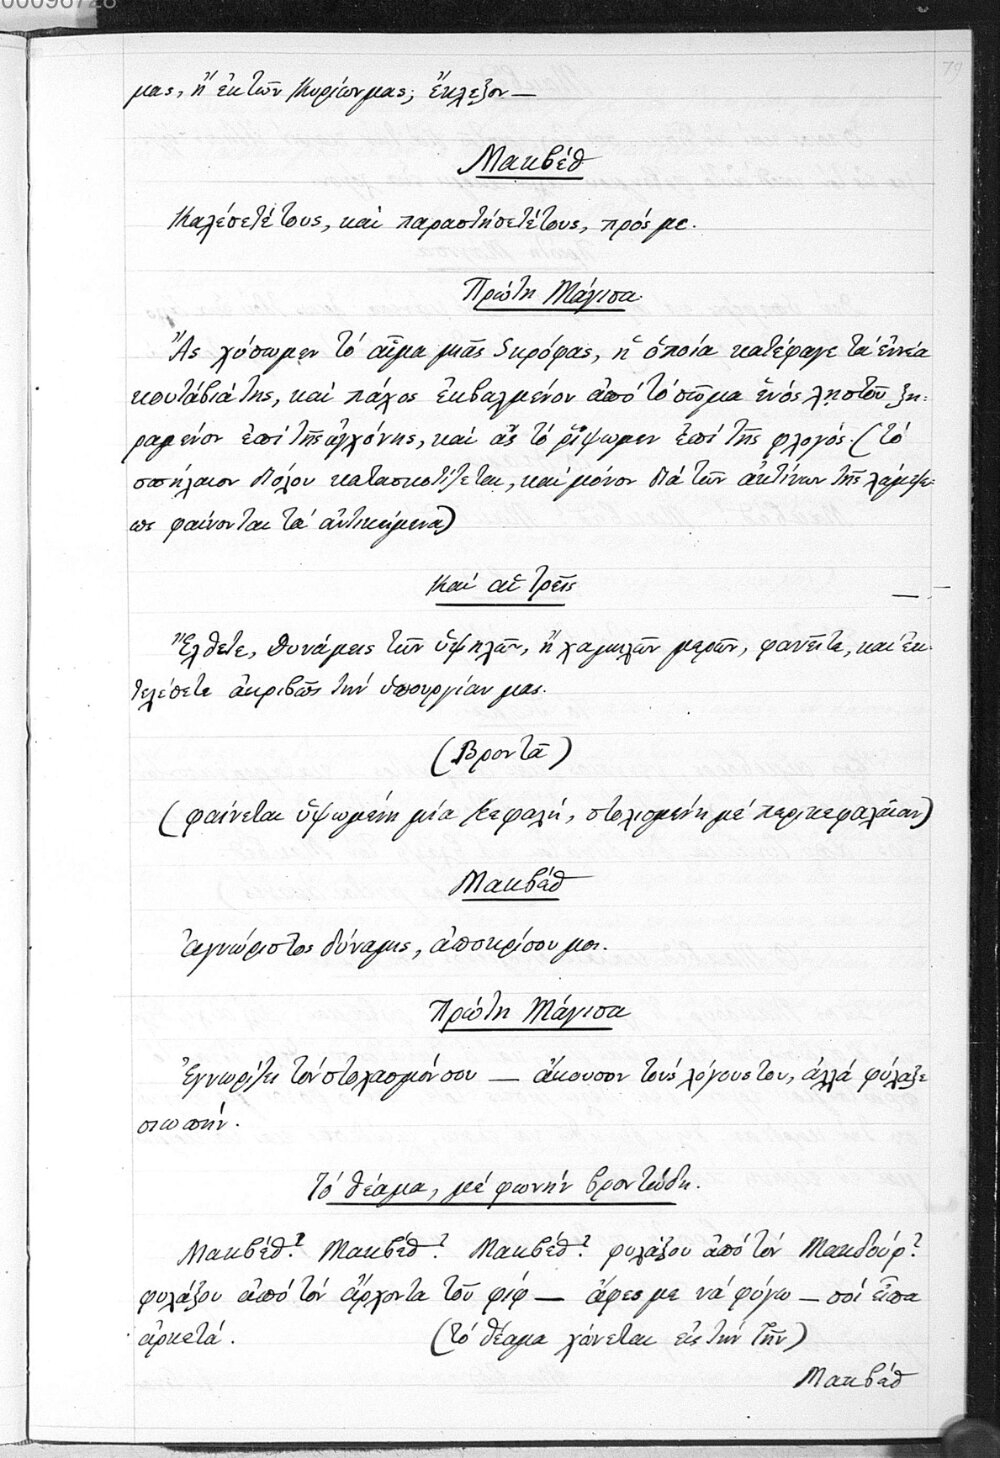 00096728
79
μας, ἢ ἐκ τῶν Κυρίων μας; ἔκλεξον —
Μακβέθ
Καλέσετέ τους, καὶ παραστήσετέ τους, πρός με.
Πρώτη Μάγισα.
Ἄς χύσωμεν τὸ αἷμα μιᾶς Σκρόφας, ἡ ὁποία κατέφαγε τὰ ἐννέα
κουτάβιά της, καὶ πάχος ἐκβαλμένον ἀπὸ τὸ σῶμα ἑνὸς ληστοῦ ξη-
ραμένον ἐπὶ τῆς ἀγχόνης, καὶ ἂς τὸ ῥίψωμεν ἐπὶ τῆς φλογός. (τὸ
σπήλαιον διόλου κατασκοτίζεται, καὶ μόνον διὰ τῶν ἀκτίνων τῆς λάμψε-
ως φαίνονται τὰ ἀντικείμενα)
Καὶ αἱ τρεῖς
Ἔλθετε, δυνάμεις τῶν ὑψηλῶν, ἢ χαμηλῶν μερῶν, φανεῖτε, καὶ ἐκ-
τελέσετε ἀκριβῶς τὴν ὑπουργίαν μας.
(Βροντᾶ)
(φαίνεται ὑψωμένη μία κεφαλή, στολισμένη μὲ περικεφαλαίαν)
Μακβέθ
ἀγνώριστος δύναμις, ἀποκρίσου μοι.
Πρώτη Μάγισα
Ἐγνωρίζει τὸν στοχασμόν σου — ἄκουσον τοὺς λόγους του, ἀλλὰ φύλαξε
σιωπήν.
Τὸ θέαμα, μὲ φωνὴν βροντώδη.
Μακβέθ? Μακβέθ? Μακβέθ? φυλάξου ἀπὸ τὸν Μακδούφ?
φυλάξου ἀπὸ τὸν ἄρχοντα τοῦ φίφ — ἄφες με νὰ φύγω — σοὶ εἶπα
ἀρκετά. (τὸ θέαμα χάνεται εἰς τὴν γῆν)
Μακβέθ